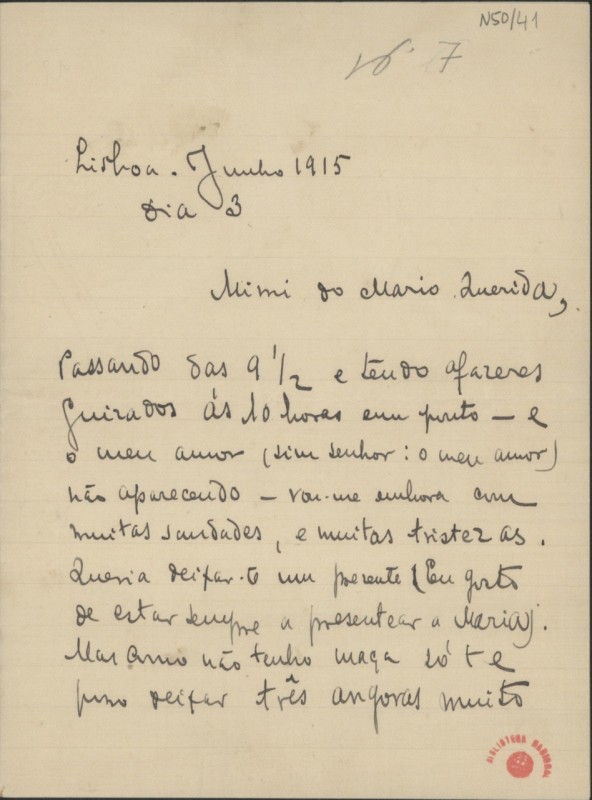 N50/41
7
Lisboa. Junho 1915
Dia 3
Mimi do Mario Querida,
Passando das 9 1/2 e tendo afazeres
Guizados ás 10 horas em ponto — e
o meu amor (sim senhor: o meu amor)
não aparecendo — vou-me embora com
muitas saudades, e muitas tristezas.
Queria deixar-te um presente (Eu gosto
de estar sempre a presentear a Maria).
Mas como não tenho maça só te
posso deixar três angoras muito
BIBLIOTECA NACIONAL